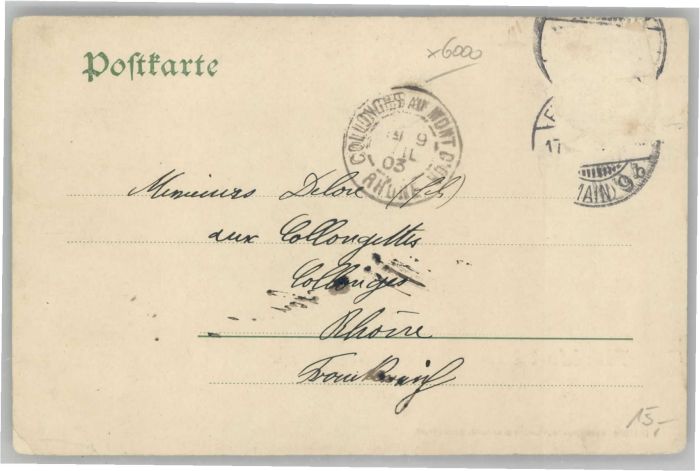 x6000
Postkarte
COLLONGES AU MONT D'OR
9
03
RHONE
17
MAIN) 9b
Messieurs Delore
aux Collongettes
Collonges
Rhône
Frankreich
15,-